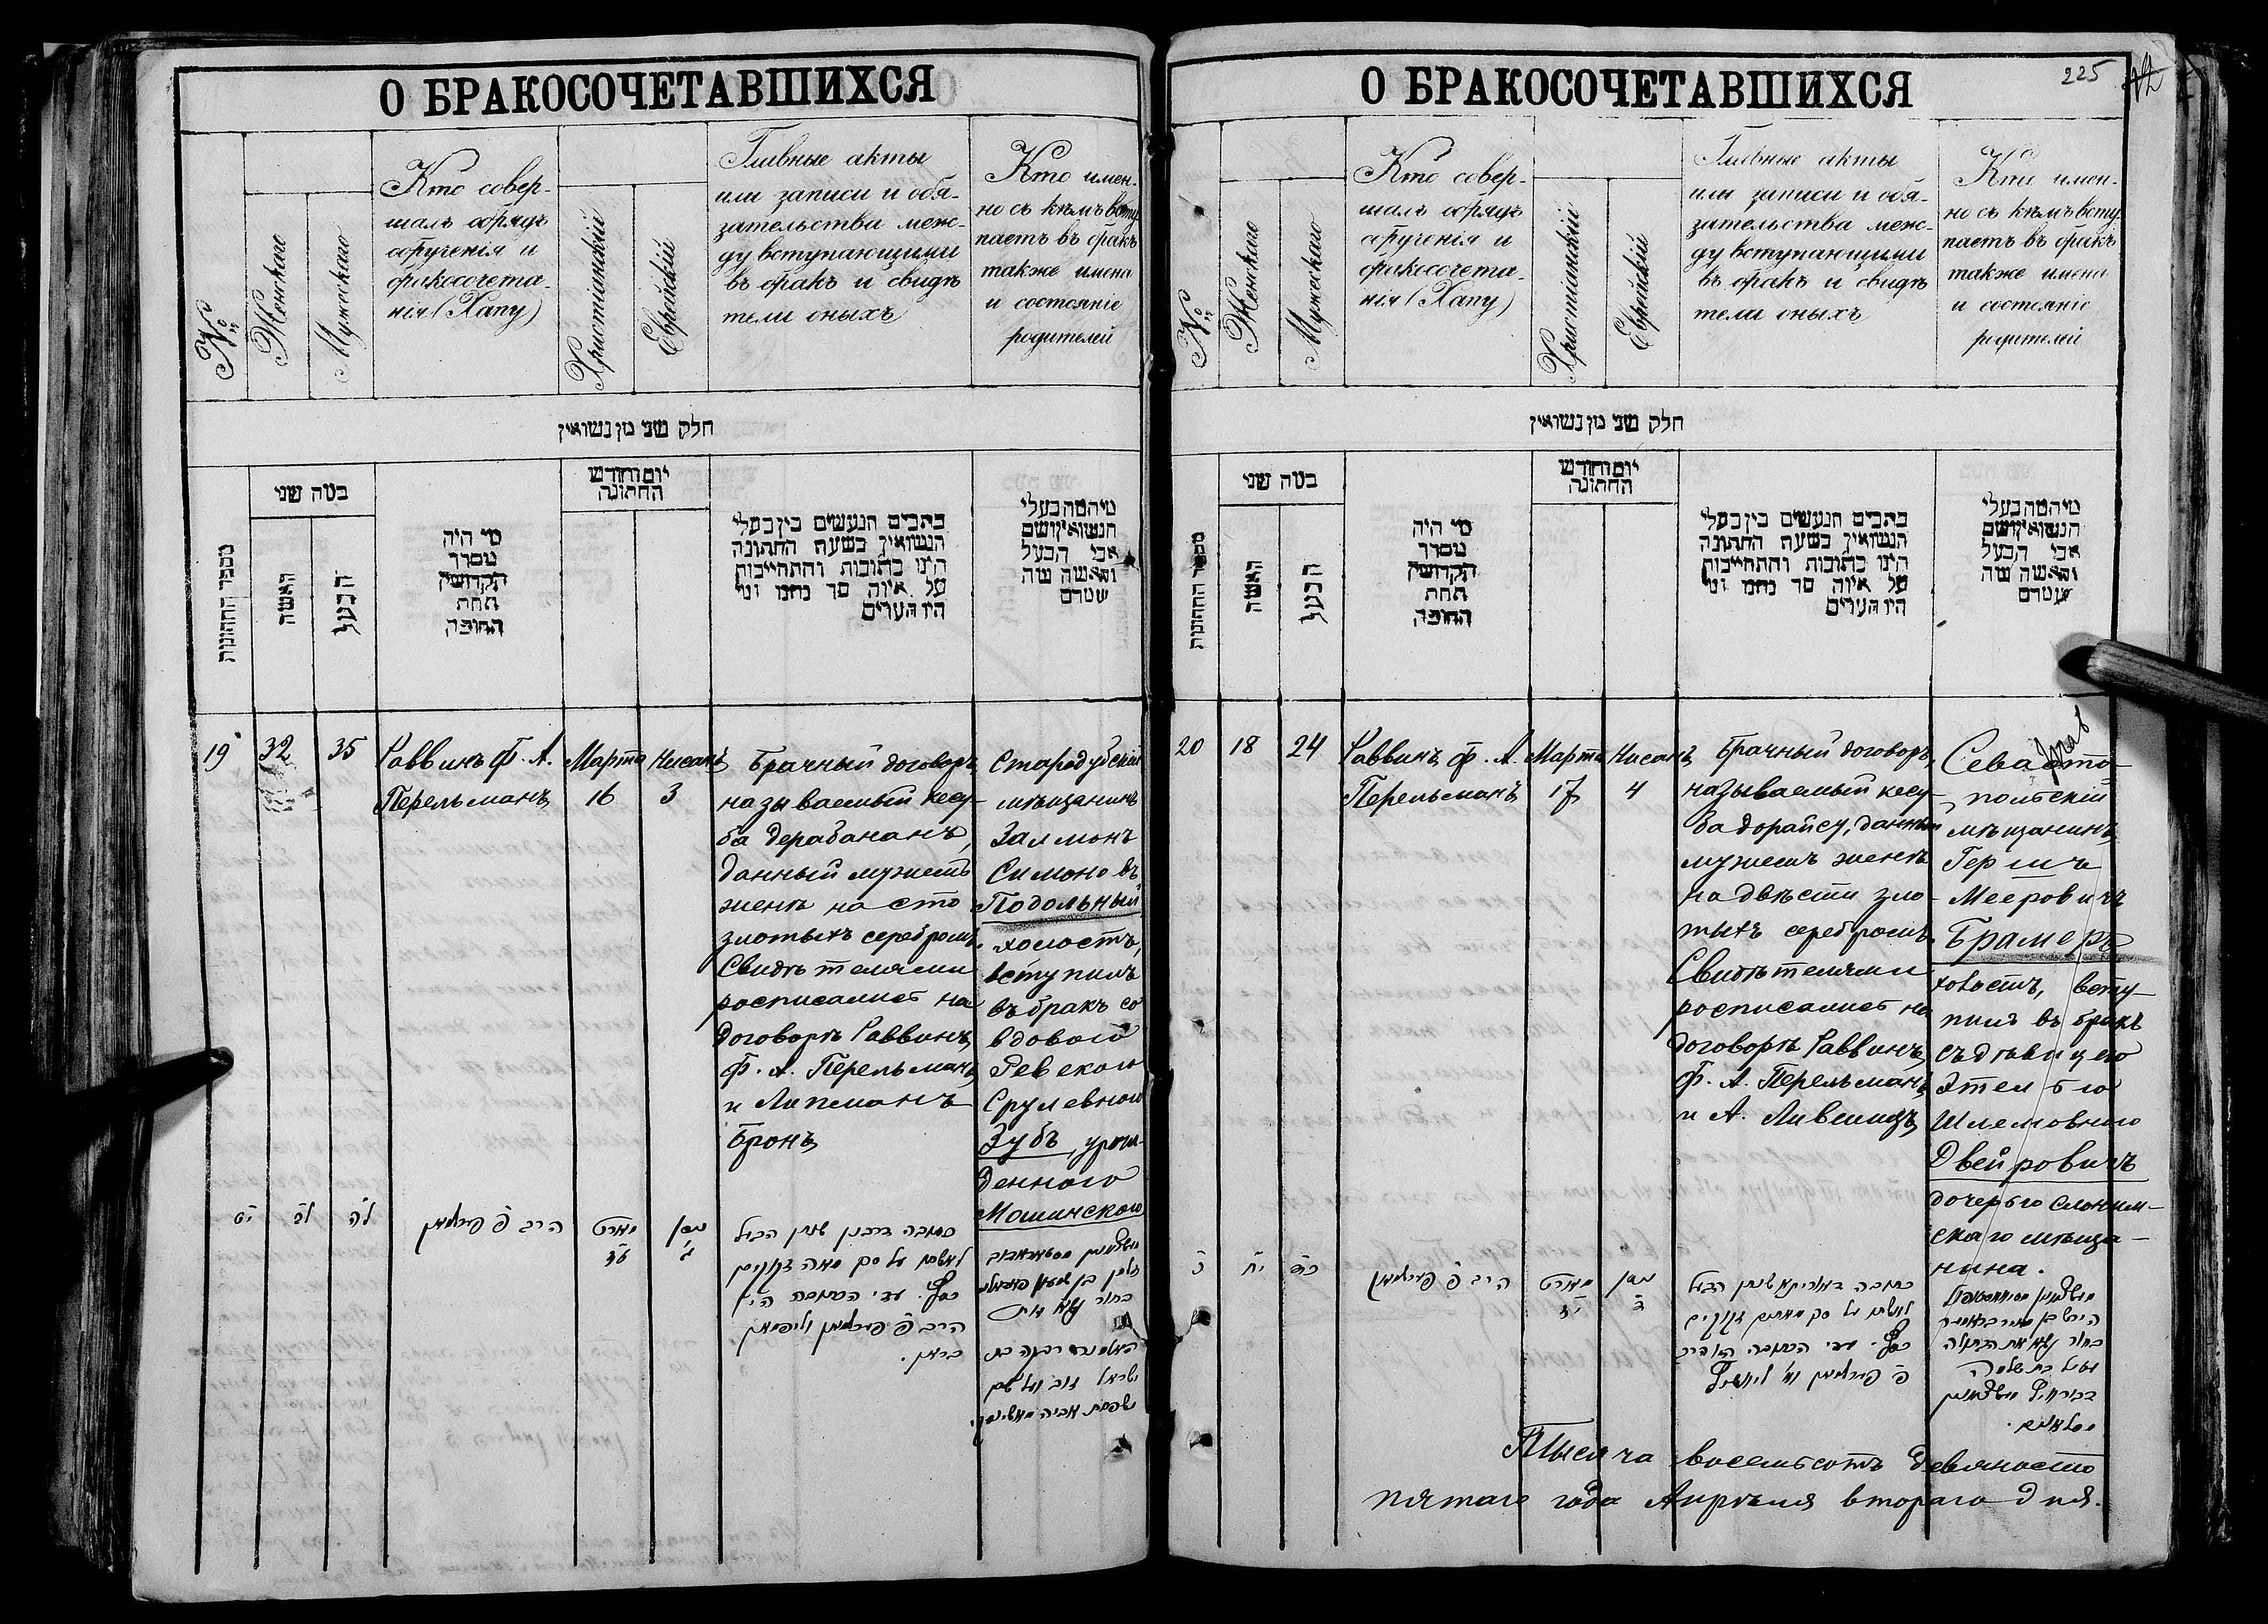 О БРАКОСОЧЕТАВШИХСЯ
№
Женскаго
Мужескаго
Кто совер-
шалъ обрядъ
обрученія и
бракосочета-
нія (Хапу)
Христіанскій
Еврейскій
Главные акты
или записи и обя-
зательства меж-
ду вступающими
въ бракъ и свидѣ
тели оныхъ
Кто имен-
но съ кѣмъ всту
паетъ въ бракъ
также имена
и состояніе
родителей
חלק שני מן נשואין
מספר החתונות
כמה שני
האשה
הבעל
מי היה
מסדר
הקדושין
תחת
החופה
יום וחודש
החתונה
כתבים הנעשים בין בעלי
הנשואין בשעת החתונה
היינו כתובות והתחייבות
על איזה סך
היו העדים
19
32
35
Раввинъ Ф. А.
Перельманъ
Марта
16
Нисанъ
3
Брачный договоръ
называемый кесу-
ба дерабананъ,
данный мужемъ
женѣ на сто
злотыхъ серебромъ.
Свидѣтелями
росписались на
договорѣ Раввинъ
Ф. А. Перельманъ
и Липманъ
Бронъ
Стародубскій
мѣщанинъ
Залмонъ
Симоновъ
Подольный
холостъ,
вступилъ
въ бракъ со
вдовою
Ревекою
Срулевною
Зубъ, урож-
денного
Мошинского
יט
לב
לה
הרב פ פערלמאן
מארט
טז
ניסן
ג
כתובה דרבנן שנתן הבעל
לאשתו על סך מאה זקוקים
כסף. עדי הכתובה היו
הרב פ פערלמאן וליפמאן
בראן.
О БРАКОСОЧЕТАВШИХСЯ
225
№
Женскаго
Мужескаго
Кто совер-
шалъ обрядъ
обрученія и
бракосочета-
нія (Хапу)
Христіанскій
Еврейскій
Главные акты
или записи и обя-
зательства меж-
ду вступающими
въ бракъ и свидѣ
тели оныхъ
Кто имен-
но съ кѣмъ всту
паетъ въ бракъ
также имена
и состояніе
родителей
חלק שני מן נשואין
מספר החתונות
כמה שני
האשה
הבעל
מי היה
מסדר
הקדושין
תחת
החופה
יום וחודש
החתונה
כתבים הנעשים בין בעלי
הנשואין בשעת החתונה
היינו כתובות והתחייבות
על איזה סך
היו העדים
20
18
24
Раввинъ Ф. А.
Перельманъ
Марта
17
Нисанъ
4
Брачный договоръ
называемый кесу-
ба дорайсу, данный
мужемъ женѣ
на двѣсти зло-
тыхъ серебромъ.
Свидѣтелями
росписались на
договорѣ Раввинъ
Ф. А. Перельманъ
и А. Лившицъ
Севасто-
польскій
мѣщанинъ
Гершъ
Мееровичъ
Брамеръ
холостъ, всту-
пилъ въ бракъ
съ дѣвицею
Этелью
Шлемовною
Двейровичъ
дочерью слоним-
скаго мѣща-
нина.
כ
יח
כד
הרב פ פערלמאן
מארט
יז
ניסן
ד
כתובה דאורייתא שנתן הבעל
לאשתו על סך מאתים זקוקים
כסף. עדי הכתובה הרב
פ פערלמאן
Тысяча восемьсотъ девяносто
пятаго года Апрѣля втораго дня.